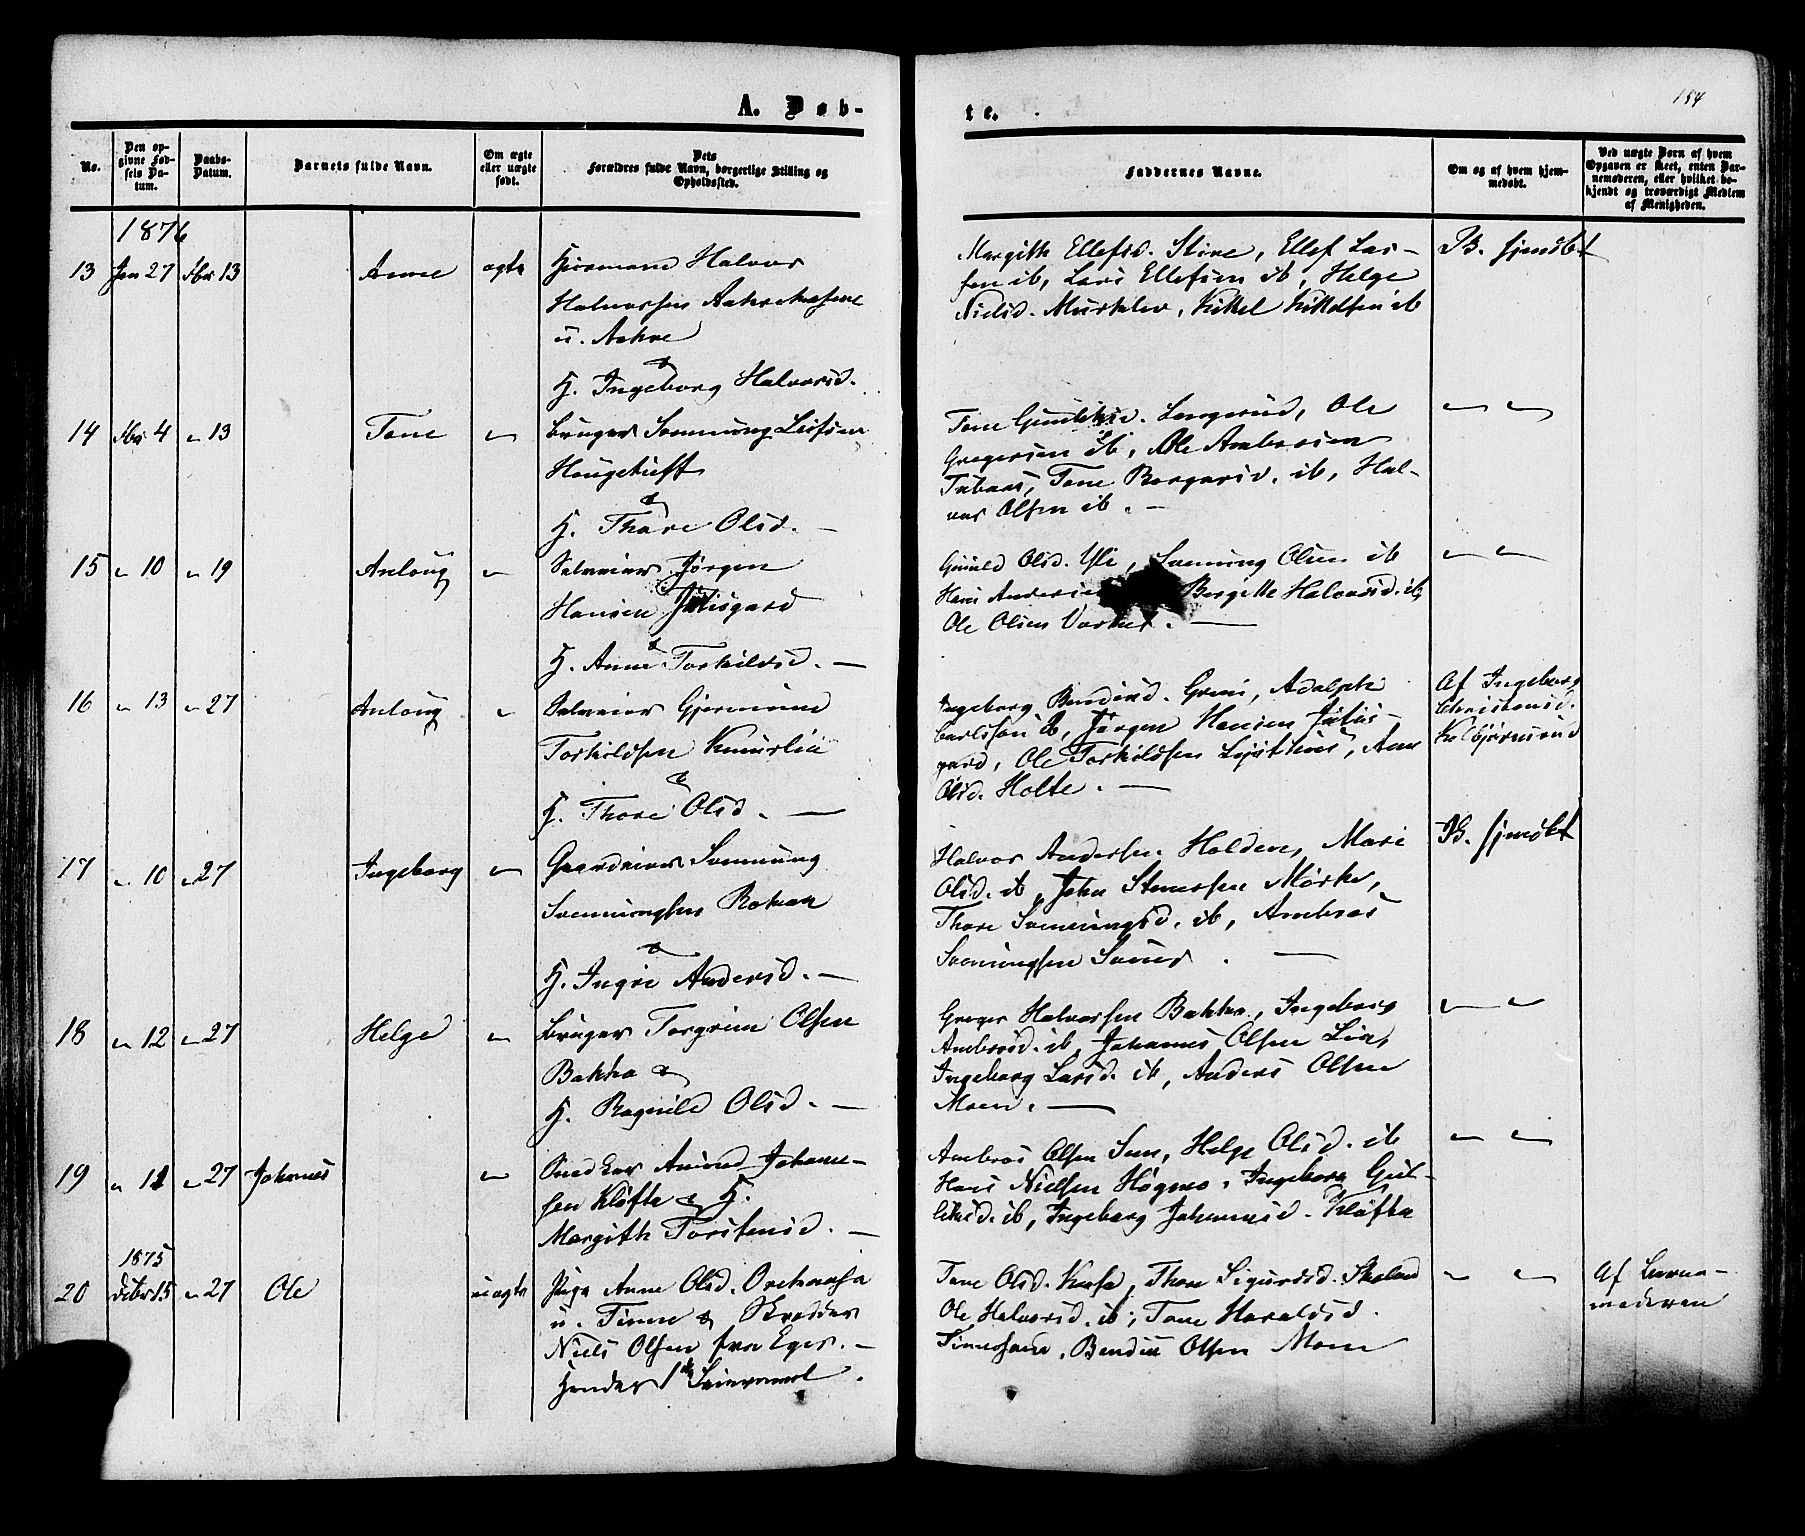 A. Døb-
te.
154
No.
Den opgivne Fødsels Datum.
Daabs-Datum.
Barnets fulde Navn.
Om ægte eller uægte født.
Dets
Forældres fulde Navn, borgerlige Stilling og
Opholdssted.
Faddernes Navne.
Om og af hvem hjemmedøbt.
Ved uægte Børn af hvem
Opgaven er skeet, enten Barnemoderen, eller hvilket bekjendt og troværdigt Medlem
af Menigheden.
1876
13 Jan 27 Fbr 13 Anne ægte
Halvor
Halvorsen
u. Aakre
&
H. Ingeborg Halvorsd.
Margith Ellefsd. Stine, Ellef Lar-
sen ib, Lars Ellefsen ib, Helge
Nielsd. Murklev, Kittel Kittelsen ib
B. hjemdøbt
14 Fbr 4 " 13 Tone "
Bruger Svenning Leifsen
Haugetuft
&
H. Thore Olsd. —
Tone Gunleiksd. Langerud, Ole
Gregersen ib, Ole Ambrosen
Tone Borgarsd. ib, Hal-
vor Olsen ib. —
" "
15 " 10 " 19 Anlaug "
Selveier Jørgen
Hansen Juvisgard
&
H. Anne Torkildsd. —
Gunild Olsd. Yli, Svenning Olsen ib
Hans Andersen Bergitte Halvorsd. ib,
Ole Olsen —
" "
16 " 13 " 27 Anlaug "
Selveier Gjermund
Torkildsen Knurlia
&
H. Thore Olsd. —
Ingeborg Bendiksd. Grini, Adolph
Carlsson ib, Jørgen Hansen
gard, Ole Torkildsen Anne
Olsd. Holte. —
Af Ingeborg
Christensd.
Kolbjørnsrud
17 " 10 " 27 Ingeborg "
Gaardeier Svenning
Svenningsen
&
H. Ingri Andersd. —
Halvor Andersen Holden, Mari
Olsd. ib, John Stenersen Mørke,
Thore Svenningsd. ib, Ambros
Svenningsen . —
B. hjemdøbt
18 " 12 " 27 Helge "
Bruger Torgrim Olsen
Bakka &
H. Ragnild Olsd. —
Greger Halvorsen Bakka, Ingeborg
Ambrosd. ib, Johannes Olsen Lia,
Ingeborg Larsd. ib, Anders Olsen
Moen. —
" "
19 " 11 " 27 Johannes "
Snedker Amund Johanne-
sen Kløfta & H.
Margith Torstensd. —
Ambros Olsen Helge Olsd. ib
Hans Nielsen Høgmo, Ingeborg Gul-
liksd. ib, Ingeborg Johannesd. Kløfta
" "
1875
20 Debr 15 " 27 Ole uægte
Pige Anne Olsd.
u. Tinne & Skrædder
Niels Olsen fra Eger. —
Hendes 1ste Leiermaal.
Tone Olsd. Kaasa, Thore Sigurdsd.
Ole Halvorsd. ib, Tone Haraldsd
Bendik Olsen Moen
" "
Af Barne-
moderen